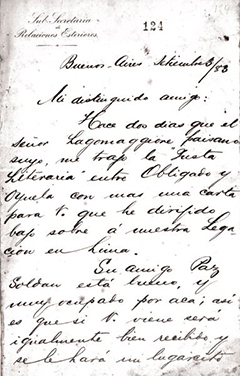 Sub-Secretaria
de
Relaciones Exteriores.
124
Buenos-Aires Setiembre 3/83
Mi distinguido amigo:
Hace dos dias que el
señor Lagomaggiore paisano
suyo, me trajo la Justa
Literaria entre Obligado y
Oyuela con mas una carta
para V. que he dirijido
bajo sobre á nuestra Lega
cion en Lima.
Su amigo Paz
Soldan está bueno, y
muy ocupado por acá; asi
es que si V. viene será
igualmente bien recibido y
se le hará un lugarcito